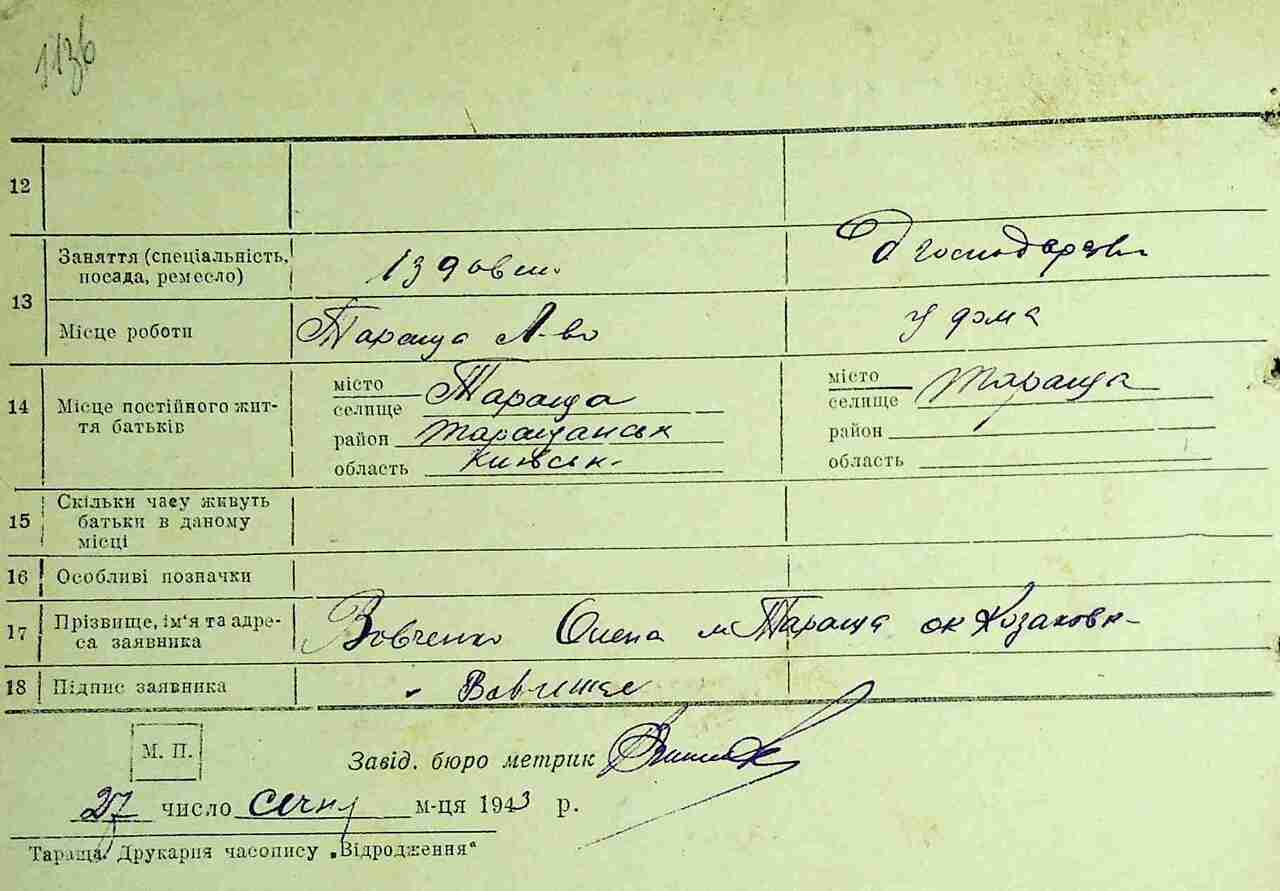 1136
12
13 Заняття (спеціальність, посада, ремесло) їздовий д господарств
Місце роботи Тараща Л-во у дома
14 Місце постійного життя батьків
місто Тараща місто Тараща
селище селище
район Таращанськ район
область Київськ. область
15 Скільки часу живуть батьки в даному місці
16 Особливі позначки
17 Прізвище, ім'я та адреса заявника Вовченко Олена м Тараща ок Козаковк-
18 Підпис заявника
М. П.
Завід. бюро метрик
27 число січня м-ця 1943 р.
Тараща. Друкарня часопису „Відродження"